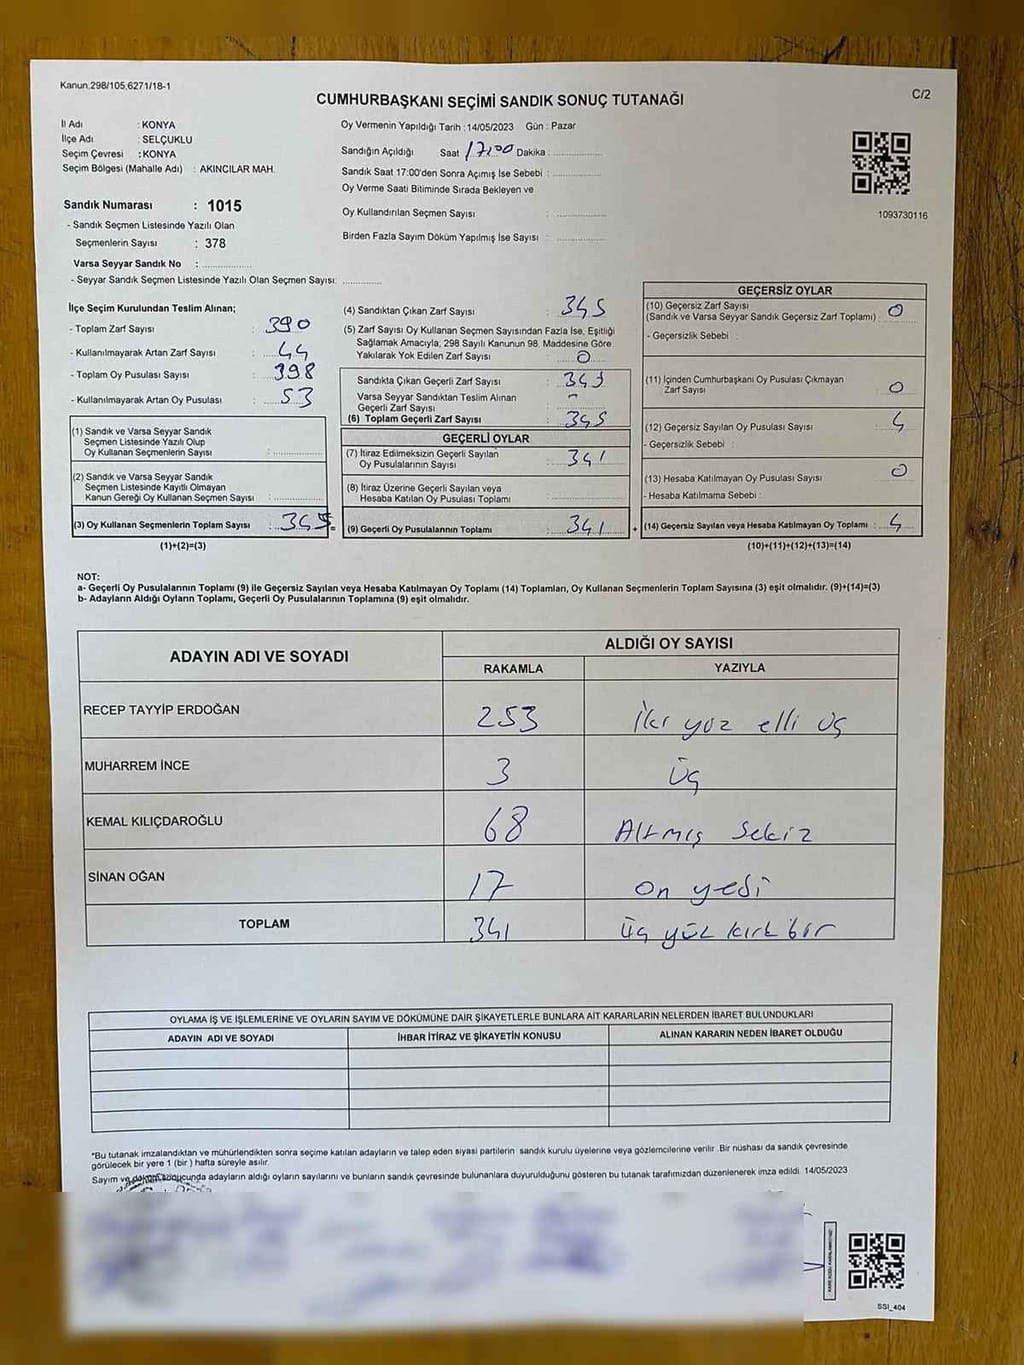 Kanun:298/105,6271/18-1
C/2
CUMHURBAŞKANI SEÇİMİ SANDIK SONUÇ TUTANAĞI
İl Adı : KONYA
İlçe Adı : SELÇUKLU
Seçim Çevresi : KONYA
Seçim Bölgesi (Mahalle Adı) : AKINCILAR MAH.
Oy Vermenin Yapıldığı Tarih : 14/05/2023 Gün : Pazar
Sandığın Açıldığı Saat 17:00 Dakika :
Sandık Saat 17:00'den Sonra Açımış İse Sebebi :
Oy Verme Saati Bitiminde Sırada Bekleyen ve
Oy Kullandırılan Seçmen Sayısı :
Birden Fazla Sayım Döküm Yapılmış İse Sayısı :
1093730116
Sandık Numarası : 1015
- Sandık Seçmen Listesinde Yazılı Olan
Seçmenlerin Sayısı : 378
Varsa Seyyar Sandık No :
- Seyyar Sandık Seçmen Listesinde Yazılı Olan Seçmen Sayısı:
İlçe Seçim Kurulundan Teslim Alınan;
- Toplam Zarf Sayısı : 390
- Kullanılmayarak Artan Zarf Sayısı : 44
- Toplam Oy Pusulası Sayısı : 398
- Kullanılmayarak Artan Oy Pusulası : 53
(1) Sandık ve Varsa Seyyar Sandık
Seçmen Listesinde Yazılı Olup
Oy Kullanan Seçmenlerin Sayısı :
(2) Sandık ve Varsa Seyyar Sandık
Seçmen Listesinde Kayıtlı Olmayan
Kanun Gereği Oy Kullanan Seçmen Sayısı :
(3) Oy Kullanan Seçmenlerin Toplam Sayısı : 345 =
(1)+(2)=(3)
(4) Sandıktan Çıkan Zarf Sayısı : 345
(5) Zarf Sayısı Oy Kullanan Seçmen Sayısından Fazla İse, Eşitliği
Sağlamak Amacıyla, 298 Sayılı Kanunun 98. Maddesine Göre
Yakılarak Yok Edilen Zarf Sayısı : 0
Sandıkta Çıkan Geçerli Zarf Sayısı : 345
Varsa Seyyar Sandıktan Teslim Alınan
Geçerli Zarf Sayısı : -
(6) Toplam Geçerli Zarf Sayısı : 345
GEÇERLİ OYLAR
(7) İtiraz Edilmeksizin Geçerli Sayılan
Oy Pusulalarının Sayısı : 341
(8) İtiraz Üzerine Geçerli Sayılan veya
Hesaba Katılan Oy Pusulası Toplamı :
(9) Geçerli Oy Pusulalarının Toplamı : 341 +
GEÇERSİZ OYLAR
(10) Geçersiz Zarf Sayısı
(Sandık ve Varsa Seyyar Sandık Geçersiz Zarf Toplamı) : 0
- Geçersizlik Sebebi :
(11) İçinden Cumhurbaşkanı Oy Pusulası Çıkmayan
Zarf Sayısı : 0
(12) Geçersiz Sayılan Oy Pusulası Sayısı : 4
- Geçersizlik Sebebi :
(13) Hesaba Katılmayan Oy Pusulası Sayısı : 0
- Hesaba Katılmama Sebebi :
(14) Geçersiz Sayılan veya Hesaba Katılmayan Oy Toplamı : 4
(10)+(11)+(12)+(13)=(14)
NOT:
a- Geçerli Oy Pusulalarının Toplamı (9) ile Geçersiz Sayılan veya Hesaba Katılmayan Oy Toplamı (14) Toplamları, Oy Kullanan Seçmenlerin Toplam Sayısına (3) eşit olmalıdır. (9)+(14)=(3)
b- Adayların Aldığı Oyların Toplamı, Geçerli Oy Pusulalarının Toplamına (9) eşit olmalıdır.
ADAYIN ADI VE SOYADI ALDIĞI OY SAYISI
RAKAMLA YAZIYLA
RECEP TAYYİP ERDOĞAN 253 İki yüz elli üç
MUHARREM İNCE 3 Üç
KEMAL KILIÇDAROĞLU 68 Altmış Sekiz
SİNAN OĞAN 17 on yedi
TOPLAM 341 Üç yüz kırk bir
OYLAMA İŞ VE İŞLEMLERİNE VE OYLARIN SAYIM VE DÖKÜMÜNE DAİR ŞİKAYETLERLE BUNLARA AİT KARARLARIN NELERDEN İBARET BULUNDUKLARI
ADAYIN ADI VE SOYADI İHBAR İTİRAZ VE ŞİKAYETİN KONUSU ALINAN KARARIN NEDEN İBARET OLDUĞU
*Bu tutanak imzalandıktan ve mühürlendikten sonra seçime katılan adayların ve talep eden siyasi partilerin sandık kurulu üyelerine veya gözlemcilerine verilir. Bir nüshası da sandık çevresinde
görülecek bir yere 1 (bir) hafta süreyle asılır.
Sayım ve döküm sonucunda adayların aldığı oyların sayılarını ve bunların sandık çevresinde bulunanlara duyurulduğunu gösteren bu tutanak tarafımızdan düzenlenerek imza edildi. 14/05/2023
SSI_404